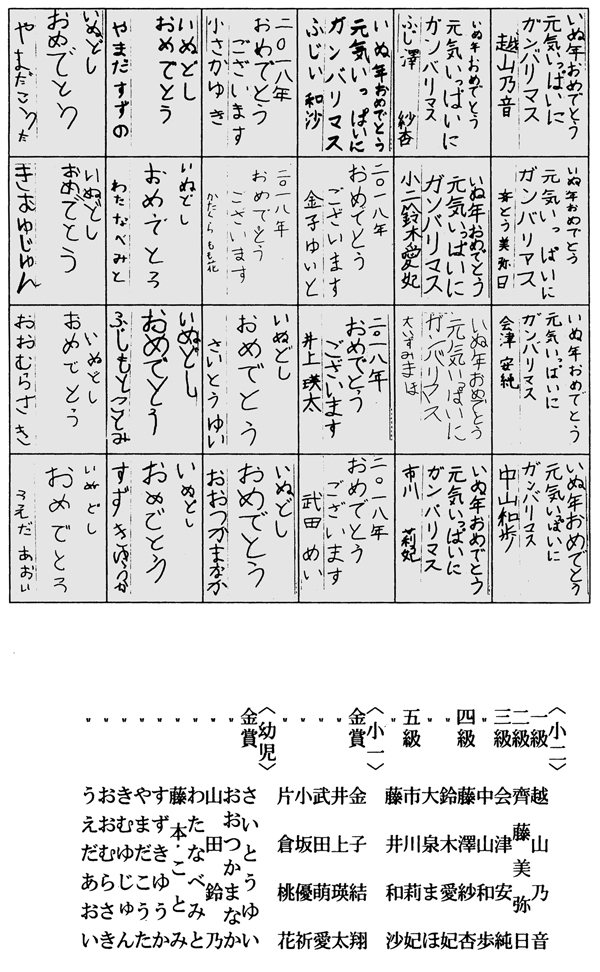 いぬ年おめでとう
元気いっぱいに
ガンバリマス
越山乃音
いぬ年おめでとう
元気いっぱいに
ガンバリマス
さいとう美弥日
いぬ年おめでとう
元気いっぱいに
ガンバリマス
会津安純
いぬ年おめでとう
元気いっぱいに
ガンバリマス
中山和歩
いぬ年おめでとう
元気いっぱいに
ガンバリマス
ふじ澤 紗杏
いぬ年おめでとう
元気いっぱいに
ガンバリマス
小二鈴木愛妃
いぬ年おめでとう
元気いっぱいに
ガンバリマス
大いずみまほ
いぬ年おめでとう
元気いっぱいに
ガンバリマス
市川 莉妃
いぬ年おめでとう
元気いっぱいに
ガンバリマス
ふじい 和沙
二〇一八年
おめでとう
ございます
金子ゆいと
二〇一八年
おめでとう
ございます
井上瑛太
二〇一八年
おめでとう
ございます
武田 めい
二〇一八年
おめでとう
ございます
小さかゆき
二〇一八年
おめでとう
ございます
かたくらもも花
いぬどし
おめでとう
さいとうゆい
いぬどし
おめでとう
おおつかまなか
いぬどし
おめでとう
やまだすずの
いぬどし
おめでとう
わたなべみと
いぬどし
おめでとう
ふじもとことみ
いぬどし
おめでとう
すずきゆうか
いぬどし
おめでとう
やまだこうた
いぬどし
おめでとう
きむゆじゅん
いぬどし
おめでとう
おおむらさき
いぬどし
おめでとう
うえだあおい
〈小二〉
一級 越山乃音
二級 齊藤美弥日
三級 会津安純
〃 中山和歩
四級 藤澤紗杏
〃 鈴木愛妃
〃 大泉まほ
五級 市川莉妃
〃 藤井和沙
〈小一〉
金賞 金子結翔
〃 井上瑛太
〃 武田萌愛
〃 小坂優祈
〃 片倉桃花
〈幼児〉
金賞 さいとうゆい
〃 おおつかまなか
〃 山田鈴乃
〃 わたなべみと
〃 藤本ことみ
〃 すずきゆうか
〃 やまだこうた
〃 きむゆじゅん
〃 おおむらさき
〃 うえだあおい